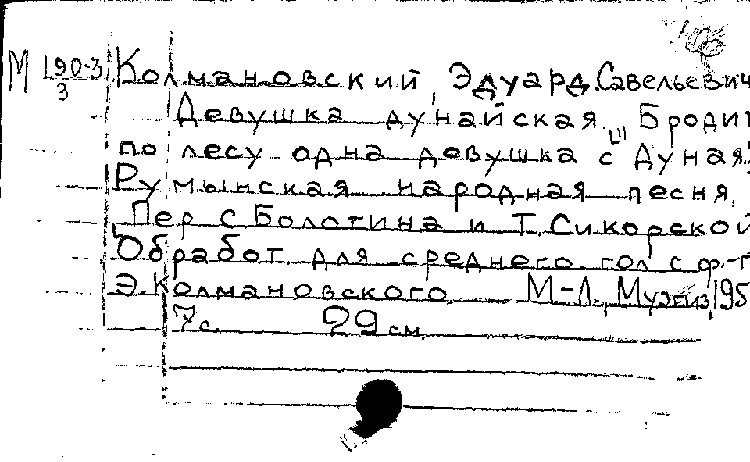 М 190-3/3 Колмановский, Эдуард Савельевич
Девушка дунайская. [1] Бродит
по лесу одна девушка с Дуная:
Румынская народная песня.
Пер С Болотина и Т. Сикорской
Обработ для среднего гол с ф-п
Э Колмановского М-Л, Музгиз, 195
7 с. 29 см.